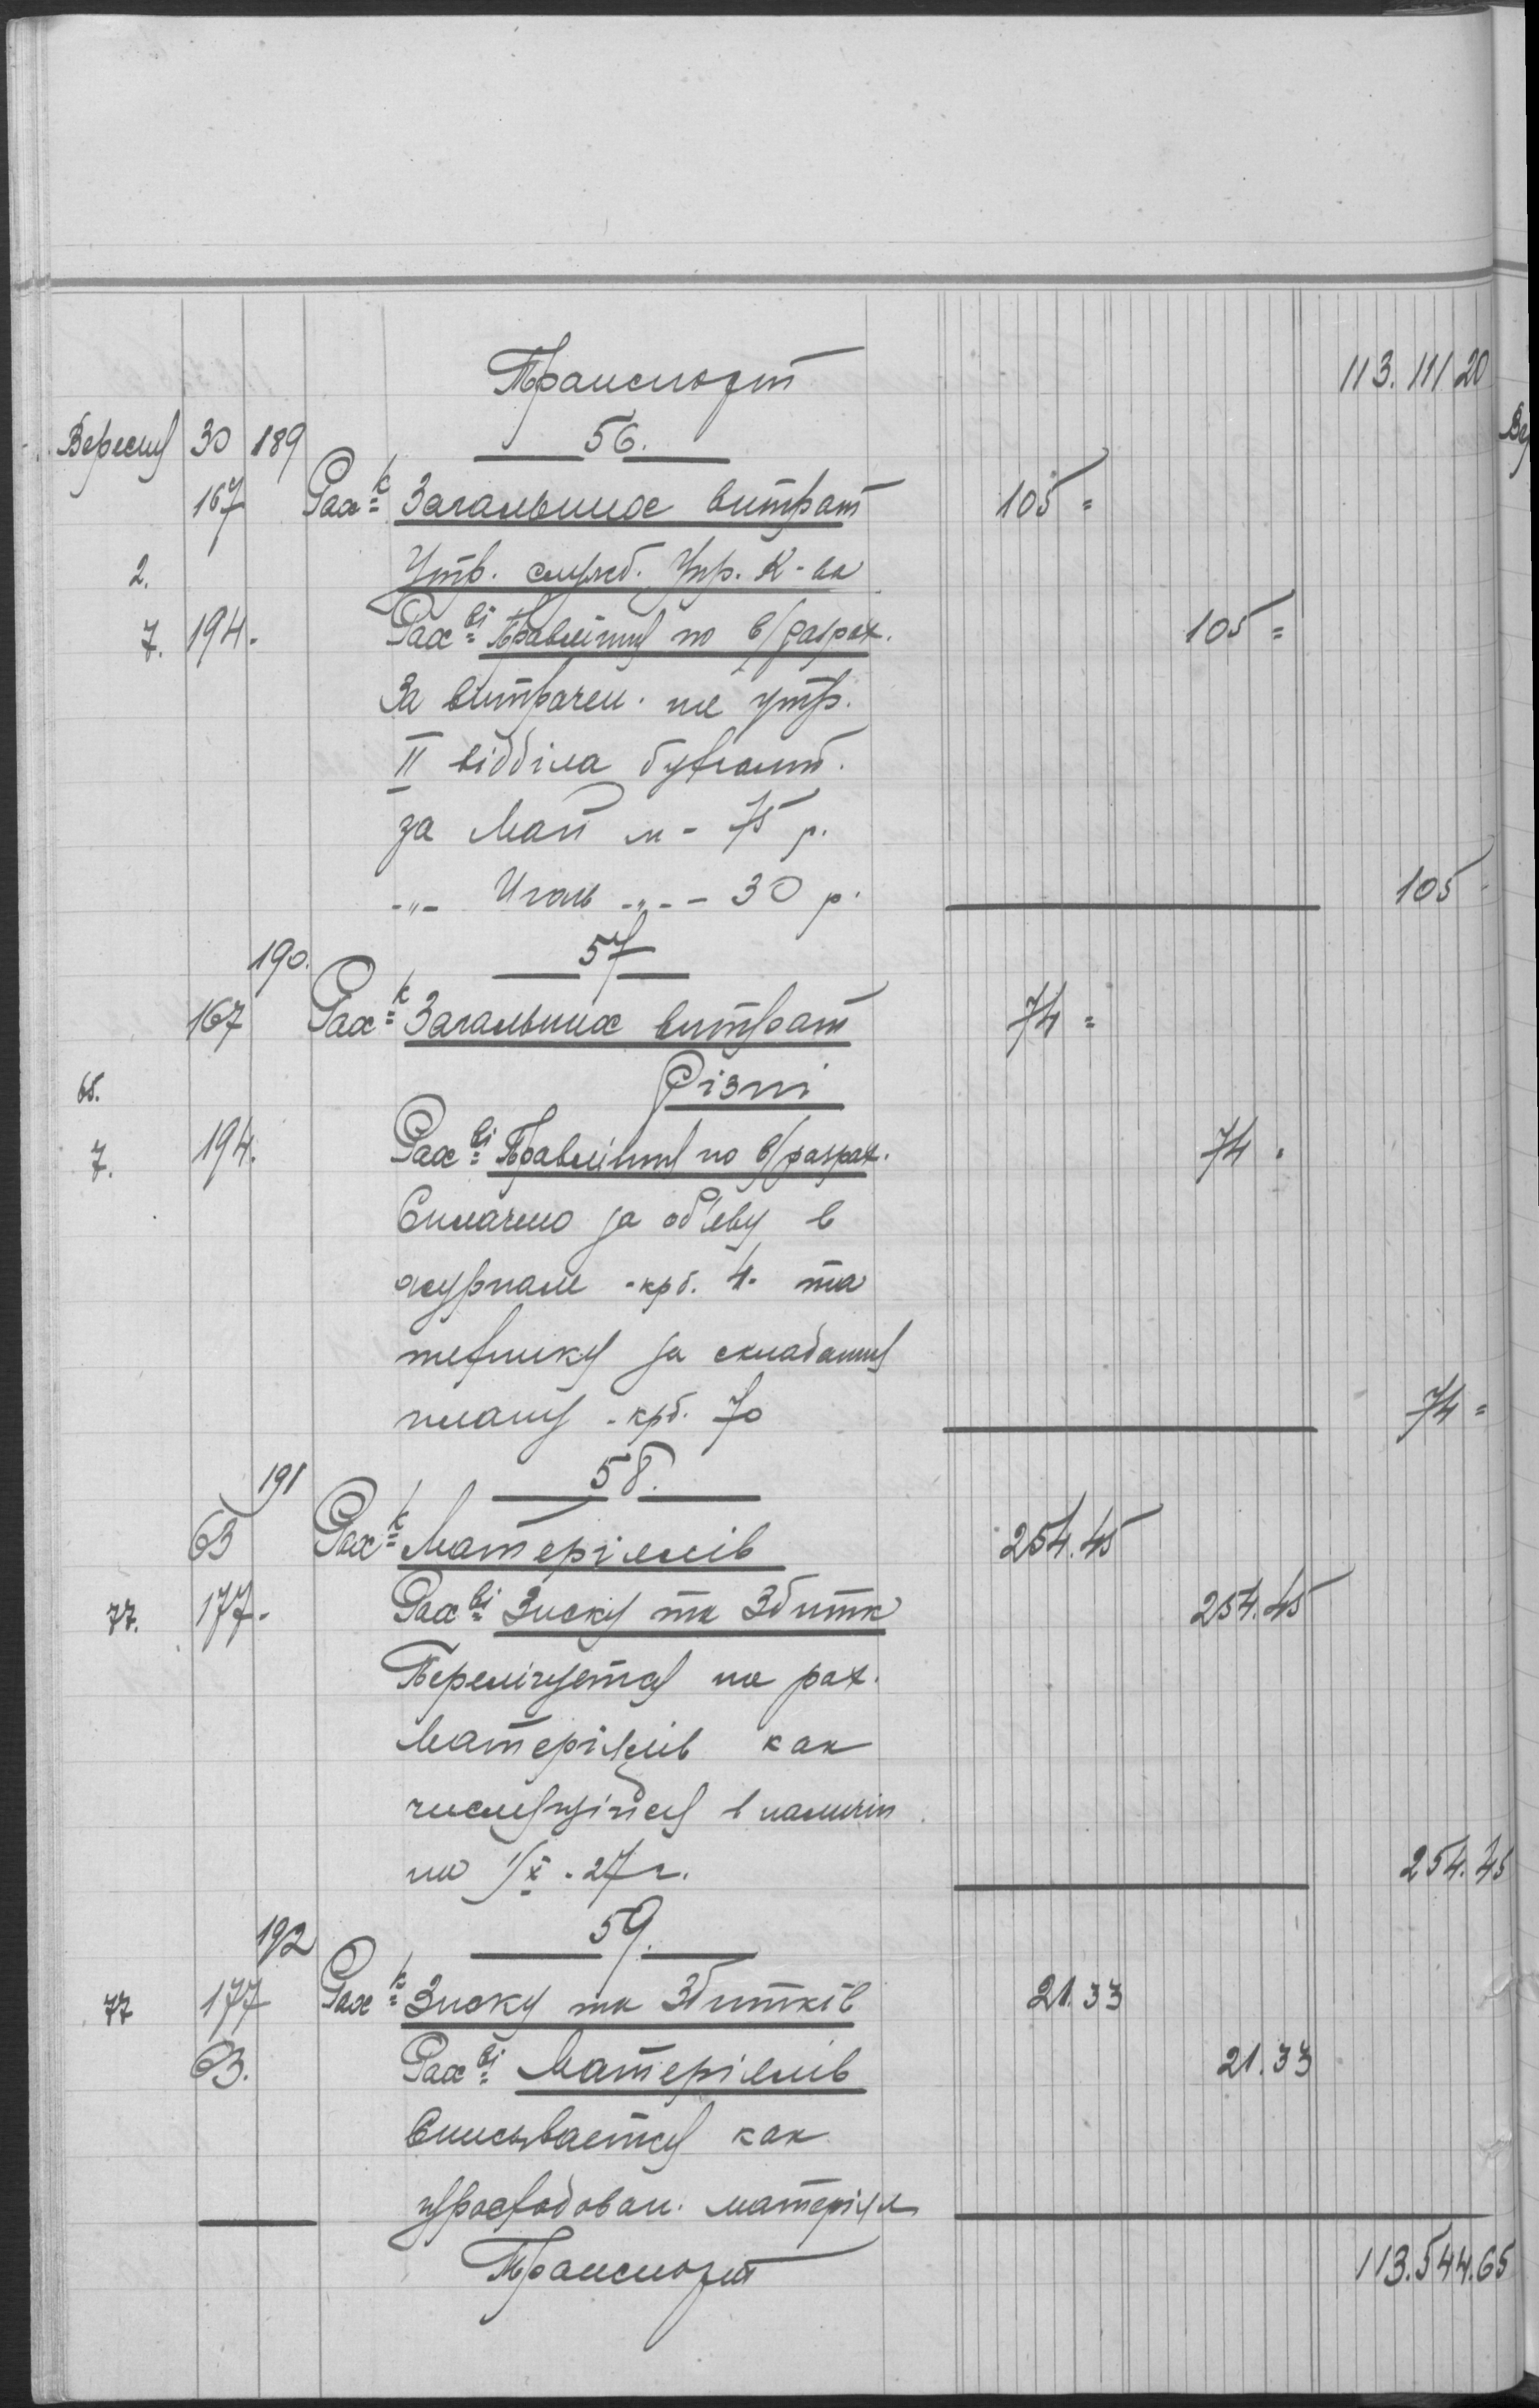 Транспорт 113.111 20
Вересня 30 189 56.
167 Рах-к Загальних витрат 105 =
2. Утр. служб. Упр. К-ва
7. 194. Рах-ві Правління по в/разрах. 105 =
За витрачен. на утр.
II відділа бухгалт.
за Май м - 75 р.
-„- Июль -„- - 30 р. 105 -
190. 57
167 Рах-к Загальних витрат 74 =
65. Різні
7. 194. Рах-ві Правління по в/разрах. 74 .
Сплачено за об'єву в
журнале - крб. 4. та
технику за складання
плану - крб. 70 74 =
191 58.
63 Рах-к Матеріялів 254.45
77. 177. Рах-ві Зиску та Збитк 254.45
Перелічується на рах.
Матеріялів как
числящійся в наличіи
на 1/X - 27 г. 254.45
192 59.
77 177 Рах-к Зиску та Збитків 21.33
63. Рах-ві Матеріялів 21.33
Списывается как
израсходован. матеріял
Транспорт 113.544.65